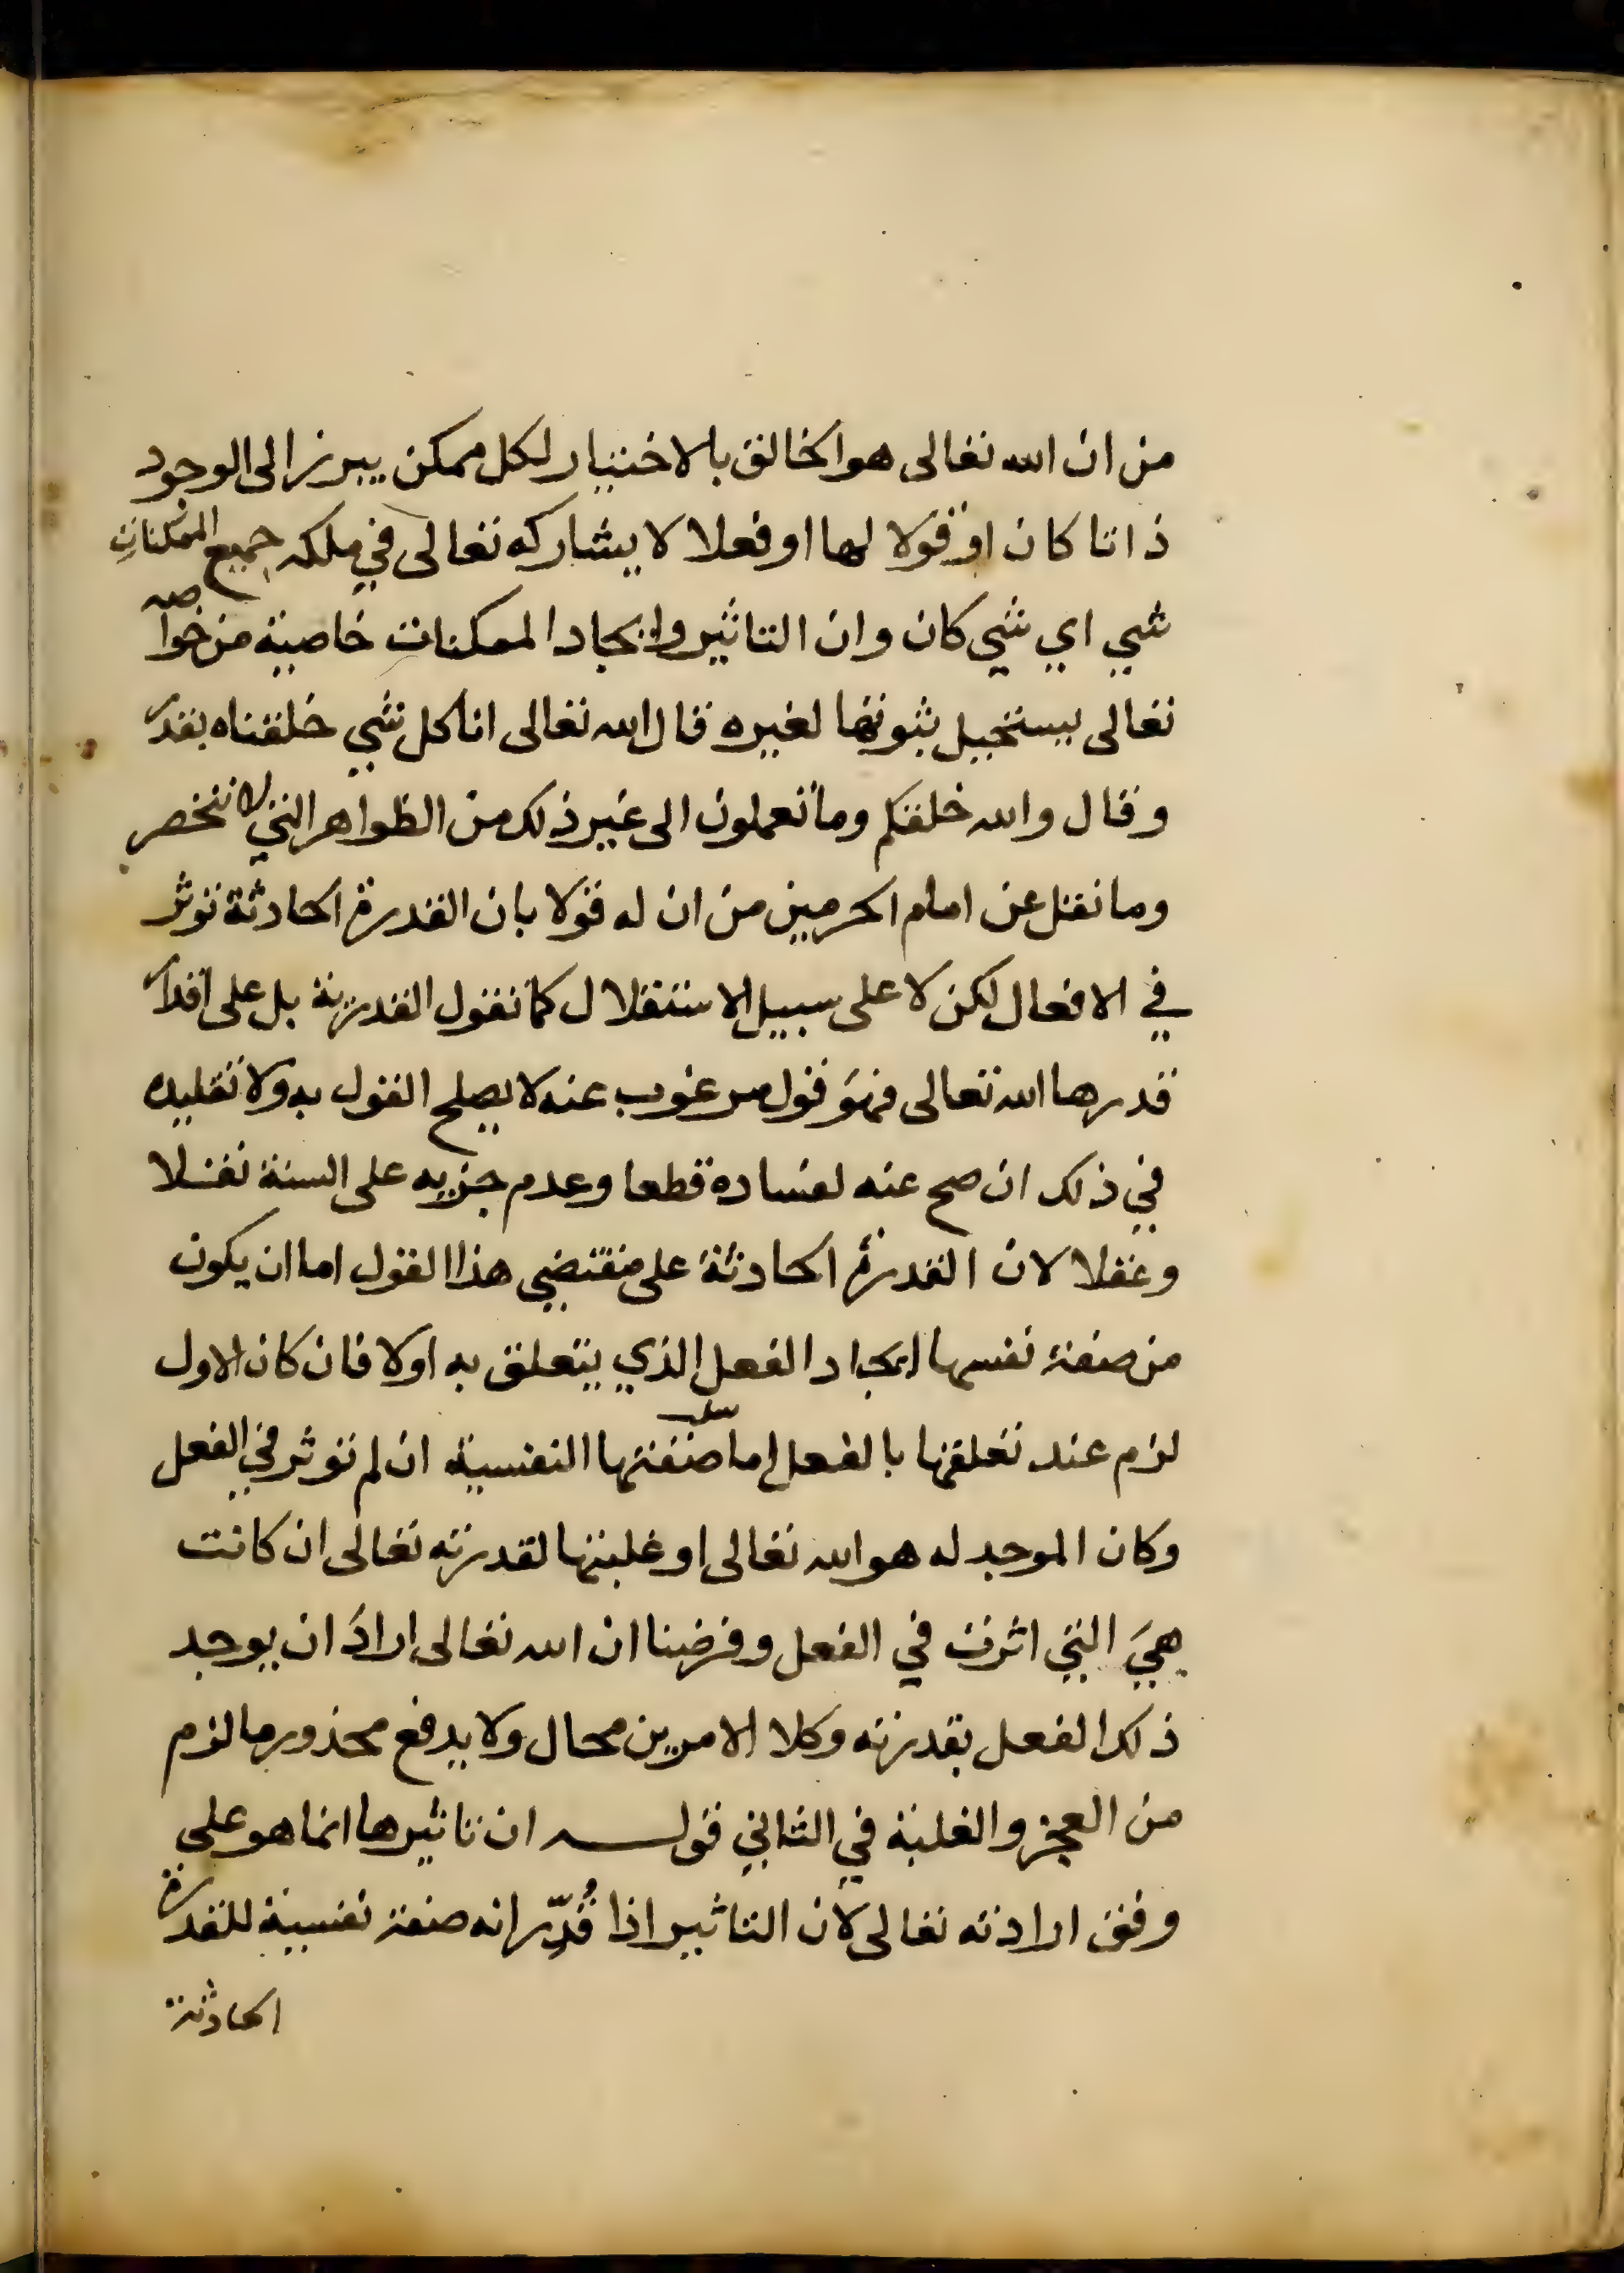 من ان الله تعالى هو الخالق بالاختيار لكل ممكن يبرز الى الوجود
ذاتا كان او قولا لها او فعلا لا يشاركه تعالى في ملكه جميع الممكنات
شي اي شي كان وان التاثير وايجاد الممكنات خاصية من خواصه
تعالى يستحيل ثبوتها لغيره قال الله تعالى انا كل شي خلقناه بقدر
وقال والله خلقكم وما تعملون الى غير ذلك من الظواهر التي لا تنحصر
وما نقل عن امام الحرمين من ان له قولا بان القدرة الحادثة توثر
في الافعال لكن لا على سبيل الاستقلال كما تقول القدرية بل على اقدار
قدرها الله تعالى فهو قول مرغوب عنه لا يصلح القول به ولا تقليده
في ذلك ان صح عنه لفساده قطعا وعدم جريه على السنة نقلا
وعقلا لان القدرة الحادثة على مقتضي هذا القول اما ان يكون
من صفة نفسها ايجاد الفعل الذي يتعلق به اولا فان كان الاول
لزم عند تعلقها بالفعل اما سلب صفتها النفسية ان لم توثر في الفعل
وكان الموجد له هو الله تعالى او غلبتها لقدرته تعالى ان كانت
هي التي اثرت في الفعل وفرضنا ان الله تعالى اراد ان يوجد
ذلك الفعل بقدرته وكلا الامرين محال ولا يدفع محذور ما لزم
من العجز والغلبة في الثاني قوله ان تاثيرها انما هو على
وفق ارادته تعالى لان التاثير اذا قُدِّر انه صفة نفسية للقدرة
الحادثة